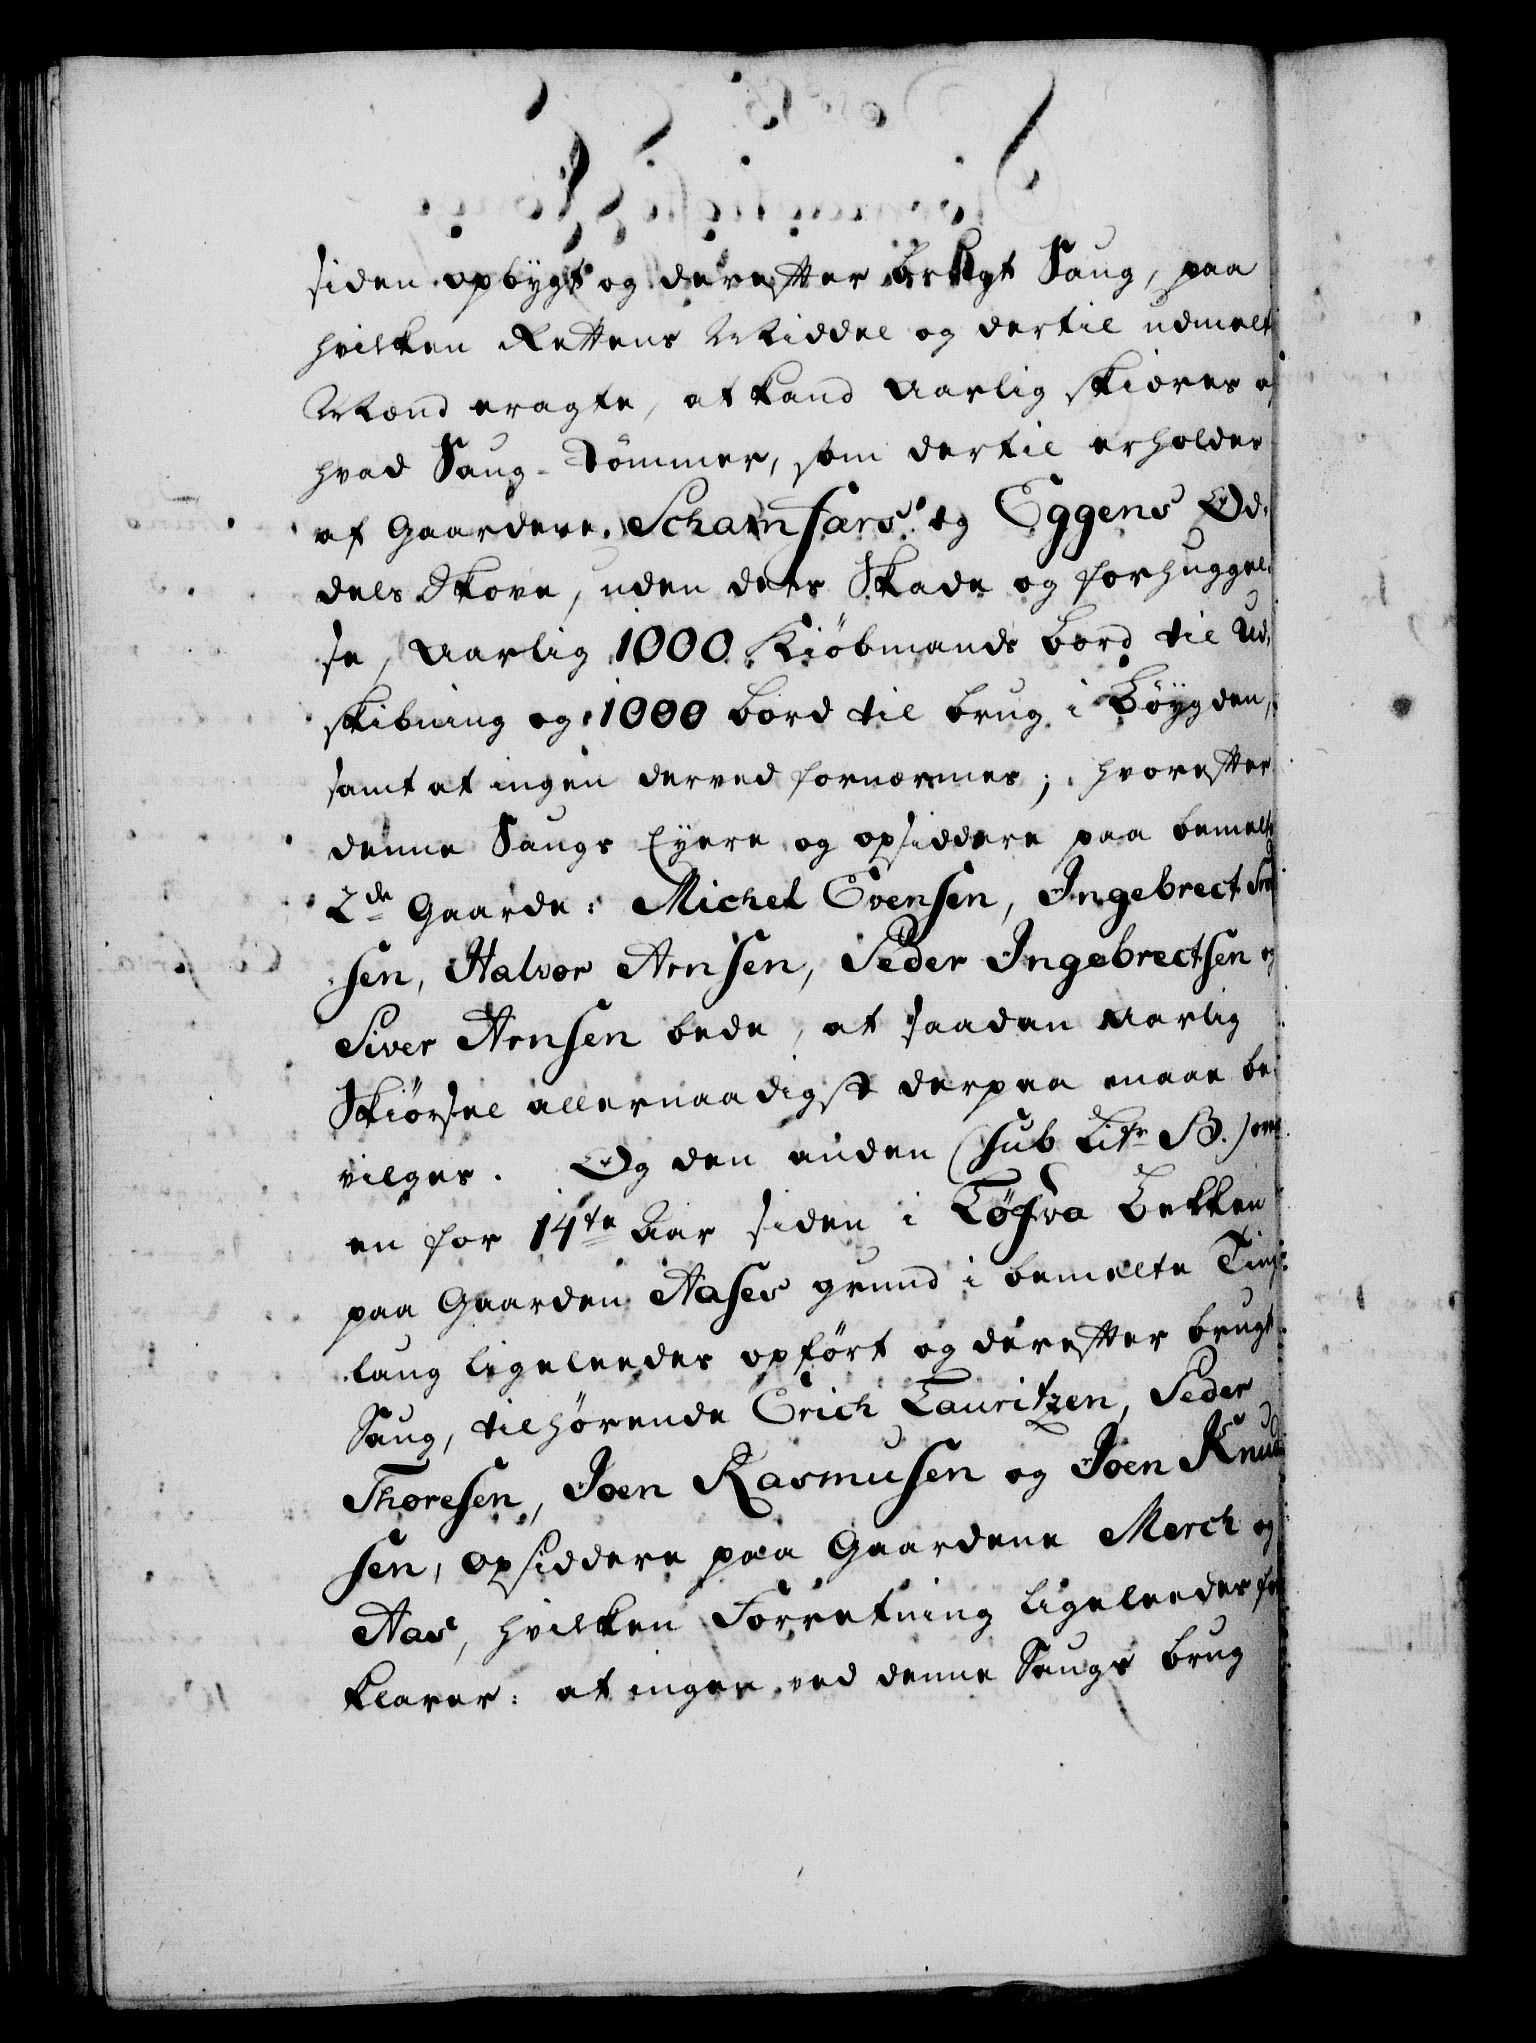 siden opbygt og derefter brugt Saug, paa
hvilken Rettens Middel og dertil udmelte
Mænd eragte, at kand aarlig skiæres af
hvad Saug-Tömmer, som dertil erholdes
af Gaardene Schamfærs og Eggens Od-
dels Skove, uden dets Skade og forhuggel-
se, aarlig 1000 Kiöbmands bord til Ud-
skibning og 1000 bord til brug i Böygden,
samt at ingen derved fornærmes; hvorefter
denne Saugs Eyere og opsiddere paa bemelte
2de Gaarde: Michel Evensen, Ingebrect
sen, Halvor Arnsen, Peder Ingebrectsen og
Siver Arnsen bede, at saadan aarlig
Skiørsel allernaadigst derpaa maae be-
vilges. Og den anden (sub Litr B.) over
en for 14te Aar siden i Løfva Bekken
paa Gaarden Aases grund i bemelte Ting-
laug ligeleedes opført og derefter brugt
Saug, tilhørende Erich Lauritzen, Peder
Thoresen, Joen Rasmusen og Joen Knud
sen, Opsiddere paa Gaardene Merch og
Aas, hvilken Forretning ligeleedes for
klarer: at ingen ved denne Saugs brug